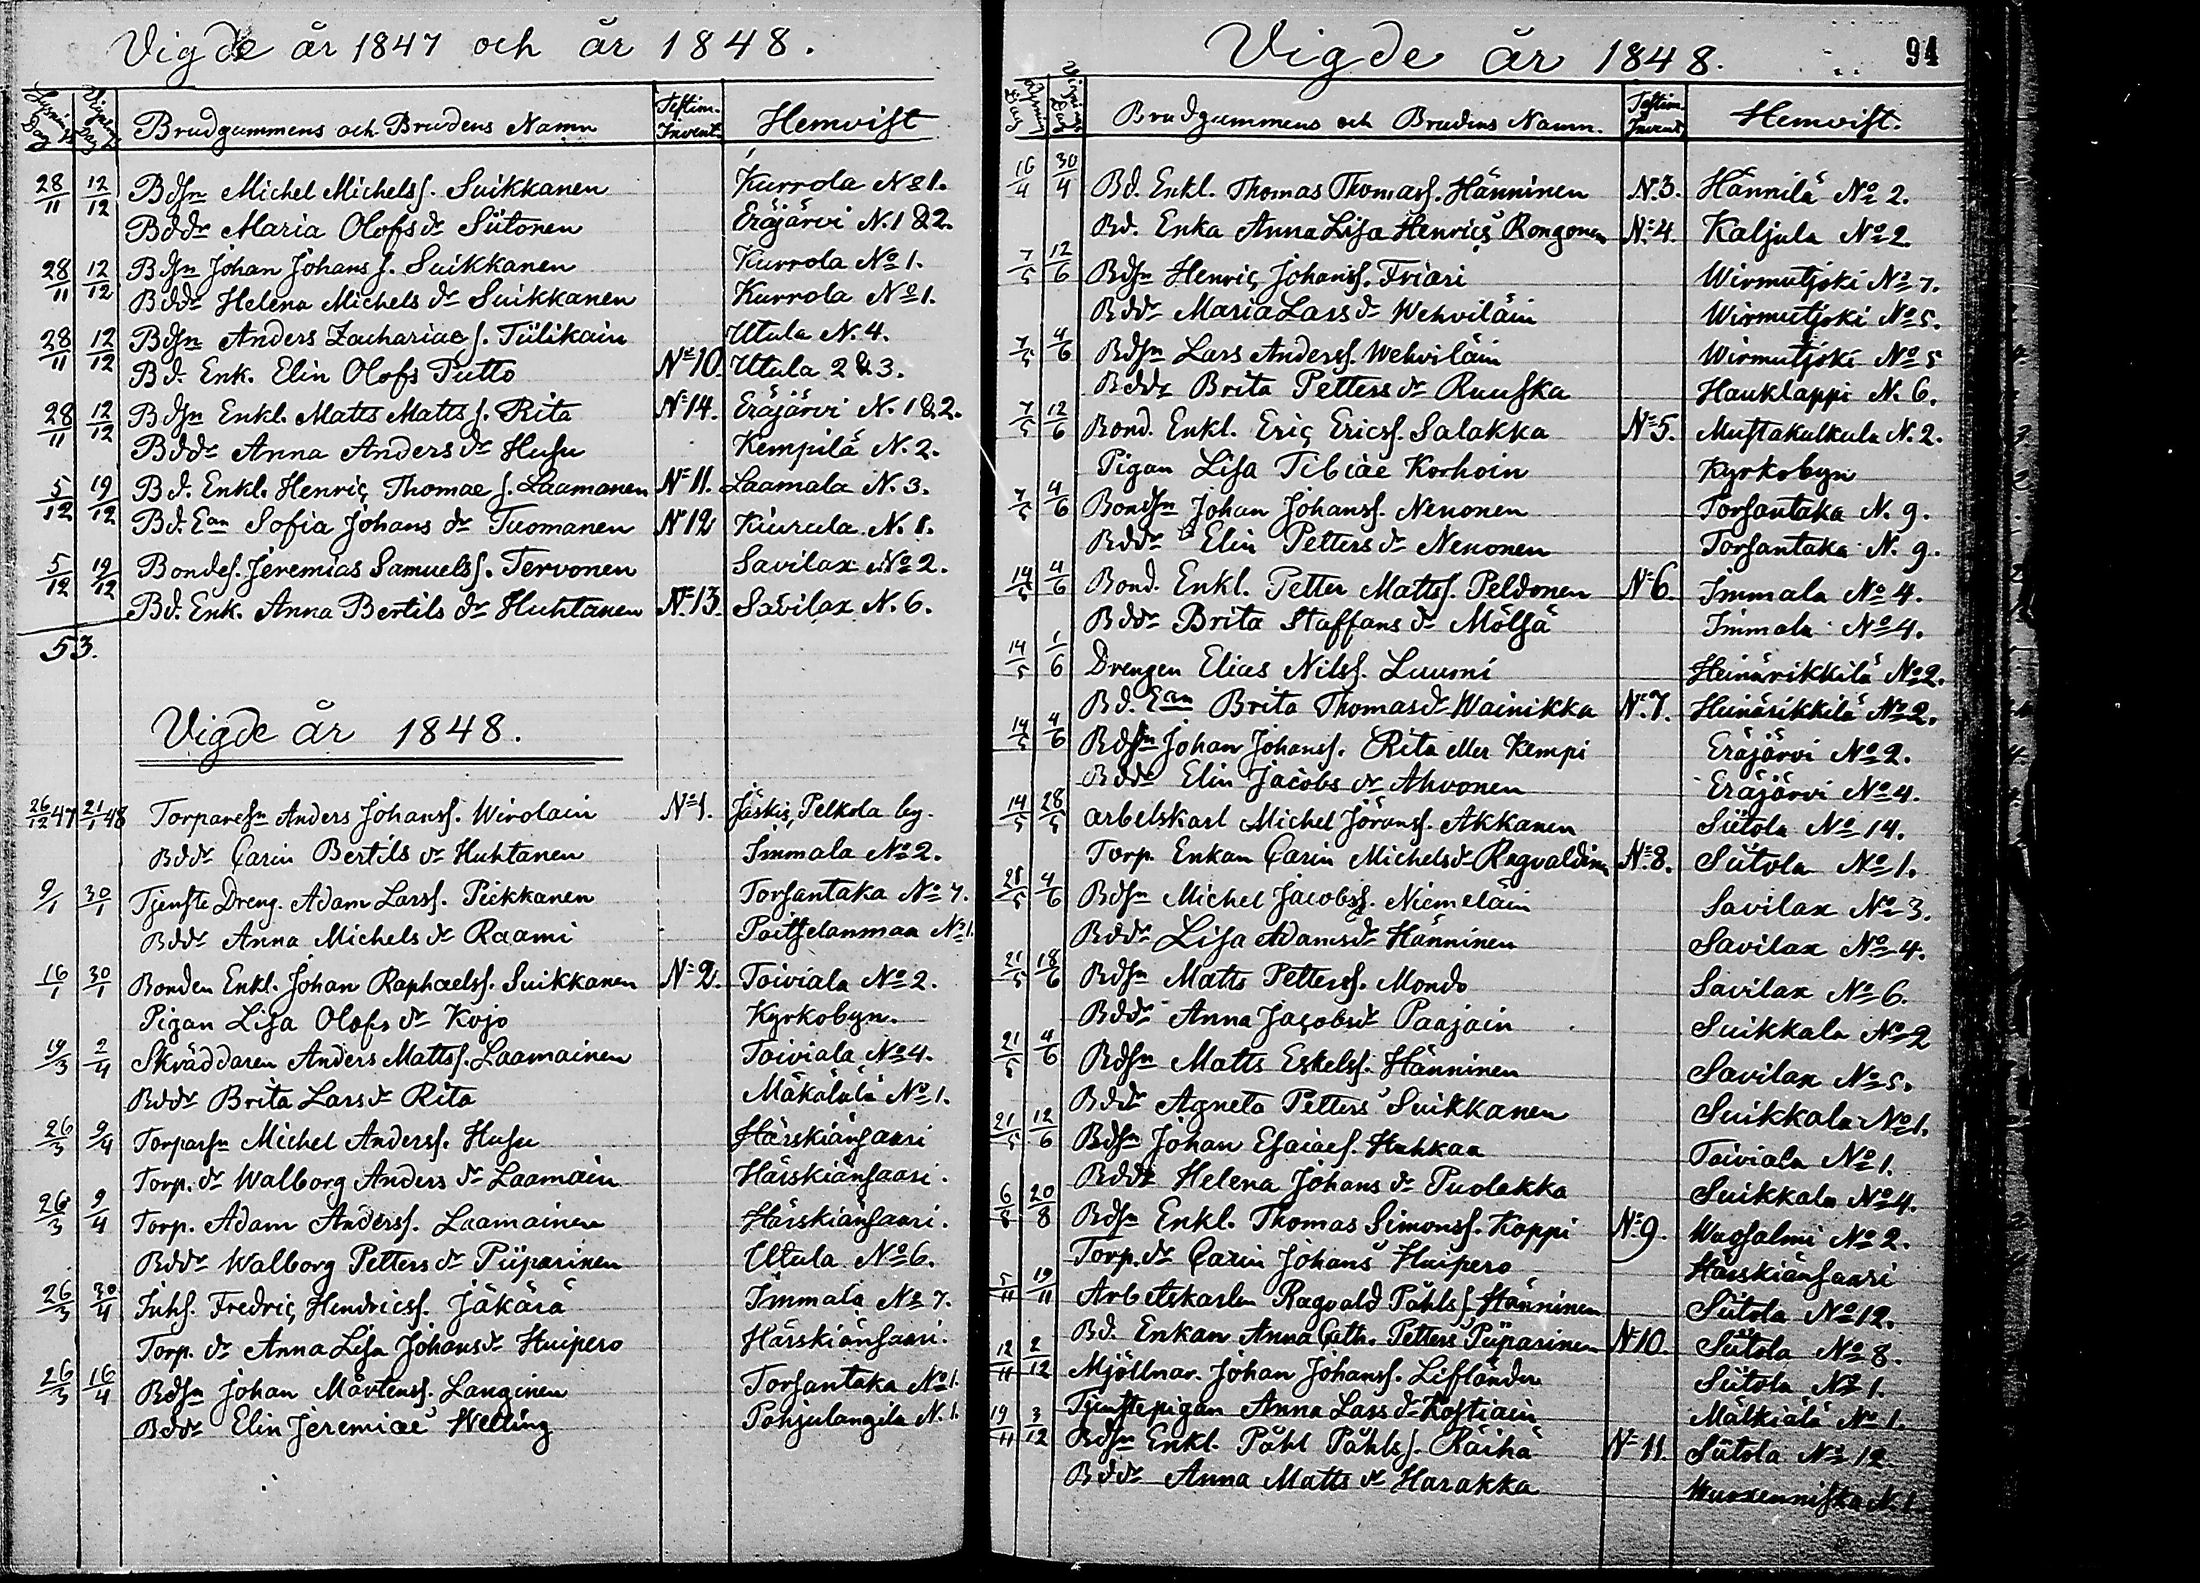 Vigde år 1847 och år 1848.
Lysnings Dag Vignings Dag Brudgummens och Brudens Namn Testim. Invent. Hemvist
28/11 12/12 Bdsn Michel Michelss. Suikkanen Kurrola No 1.
Bddr Maria Olofs dr Siitonen Eräjärvi N. 1 & 2.
28/11 12/12 Bdsn Johan Johans s. Suikkanen Kurrola No 1.
Bddr Helena Michels dr Suikkanen Kurrola No 1.
28/11 12/12 Bdsn Anders Zachariae s. Tiilikain Utula N. 4.
Bd. Enk. Elin Olofs Putto No 10. Utula 2 & 3.
28/11 12/12 Bdsn Enkl. Matts Matts s. Rita No 14. Eräjärvi N. 1 & 2.
Bddr Anna Anders dr Husu Kempilä N. 2.
5/12 19/12 Bd. Enkl. Henric Thomae s. Laamanen No 11. Laamala N. 3.
Bd. Ean Sofia Johans dr Tuomanen No 12 Kiurula N. 1.
5/12 19/12 Bondes. Jeremias Samuelss. Tervonen Savilax No 2.
Bd. Enk. Anna Bertils dr Huhtanen No 13. Savilax N. 6.
53.
Vigde år 1848.
26/12 47 21/1 48 Torparesn Anders Johanss. Wirolain No 1. Jäskis, Pelkola by.
Bddr Carin Bertils dr Huhtanen Immala No 2.
9/1 30/1 Tjenste Dreng. Adam Larss. Pickkanen Torsantaka No 7.
Bddr Anna Michels dr Raami Paitselanmaa No 1.
16/1 30/1 Bonden Enkl. Johan Raphaelss. Suikkanen No 2. Toiviala No 2.
Pigan Lisa Olofs dr Kojo Kyrkobyn.
19/3 2/4 Skräddaren Anders Mattss. Laamainen Toiviala No 4.
Bddr Brita Lars dr Rita Mäkälälä No 1.
26/3 9/4 Torparsn Michel Anderss. Husu Härskiänsaari
Torp. dr Walborg Anders dr Laamain Härskiänsaari.
26/3 9/4 Torp. Adam Anderss. Laamainen Härskiänsaari.
Bddr Walborg Petters dr Piiparinen Utula No 6.
26/3 30/4 Inhs. Fredric Hendricss. Jäkärä Immala No 7.
Torp. dr Anna Lisa Johans dr Huipero Härskiänsaari.
26/3 16/4 Bdsn Johan Mårtenss. Langinen Torsantaka No 1.
Bddr Elin Jeremiae Welling Pohjalangila N. 1.
Vigde år 1848. 94
Lysnings Dag Vignings Dag Brudgummens och Brudens Namn. Testim. Invent. Hemvist.
16/4 30/4 Bd. Enkl. Thomas Thomass. Hänninen N. 3. Hännilä No 2.
Bd. Enka Anna Lisa Henrics Rongonen No 4. Kaljula No 2.
7/5 12/6 Bdsn Henric Johanss. Friari Wirmutjoki No 7.
Bddr Maria Lars dr Wehviläin Wirmutjoki No 5.
7/5 4/6 Bdsn Lars Anderss. Wehviläin Wirmutjoki No 5
Bddr Brita Petters dr Ruuska Hauklappi N. 6.
7/5 12/6 Bond. Enkl. Eric Ericss. Salakka No 5. Mustakulkula N. 2.
Pigan Lisa Tibiae Korhoin Kyrkobyn
7/5 4/6 Bondsn Johan Johanss. Nenonen Torsantaka N. 9.
Bddr Elin Petters dr Nenonen Torsantaka N. 9.
14/5 4/6 Bond. Enkl. Petter Mattss. Peldonen No 6. Immala No 4.
Bddr Brita Staffans dr Mölsä Immala No 4.
14/5 1/6 Drengen Elias Nilss. Luumi Heinärikkilä No 2.
Bd. Ean Brita Thomas dr Wainikka No 7. Heinärikkilä No 2.
14/5 4/6 Bdsn Johan Johanss. Rita eller Kempi Eräjärvi No 2.
Bddr Elin Jacobs dr Ahvonen Eräjärvi No 4.
14/5 28/5 arbetskarl Michel Jöranss. Akkanen Siitola No 14.
Torp. Enkan Carin Michels dr Ragvaldin No 8. Siitola No 1.
28/5 4/6 Bdsn Michel Jacobss. Niemeläin Savilax No 3.
Bddr Lisa Adams dr Hänninen Savilax No 4.
21/5 18/6 Bdsn Matts Petterss. Mondo Savilax No 6.
Bddr Anna Jacobs dr Paajain Suikkala No 2
21/5 4/6 Bdsn Matts Eskelss. Hänninen Savilax No 5.
Bddr Agneta Petters Suikkanen Suikkala No 1.
21/5 12/6 Bdsn Johan Esaiaes. Huhkaa Toiviala No 1.
Bddr Helena Johans dr Puolakka Suikkala No 4.
6/8 20/8 Bdsn Enkl. Thomas Simonss. Koppi No 9. Wuosalmi No 2.
Torp. dr Carin Johans Huipero Härskiänsaari
5/11 19/11 Arbetskarlen Ragvald Påhls s. Hänninen Siitola No 12.
Bd. Enkan Anna Cath. Petters Piiparinen No 10. Siitola No 8.
12/11 2/12 Mjöllnar. Johan Johanss. Lifländer Siitola No 1.
Tjenstepigan Anna Lass dr Kostiain Mälkiälä No 1.
19/11 3/12 Bdsn Enkl. Påhl Påhls s. Räihä No 11. Siitola No 12
Bddr Anna Matts dr Harakka Wuoxenniska N. 1